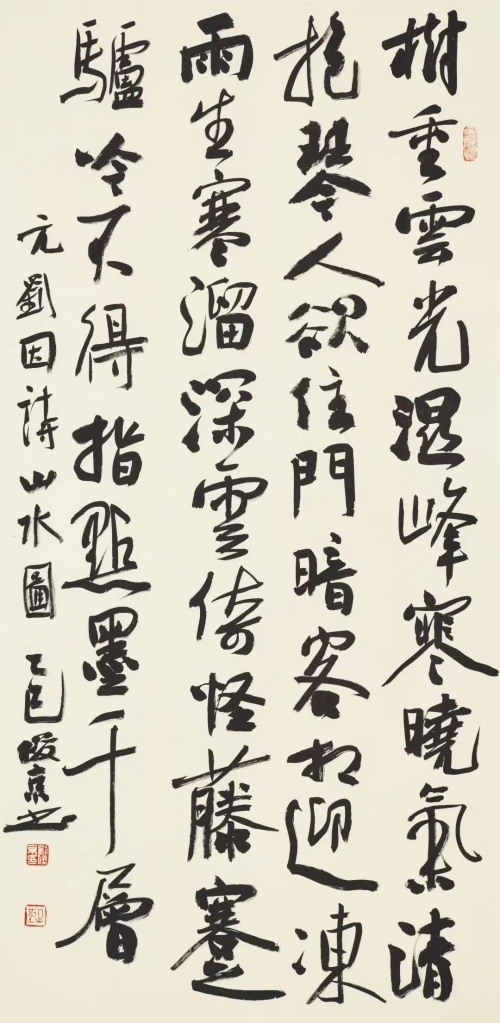 樹重雲光濕峰寒曉氣清
抱琴人欲住門暗客相迎凍
雨生寒溜深雲倚怪藤蹇
驢吟不得指點墨千層
元劉因詩山水圖 乙巳俊京书